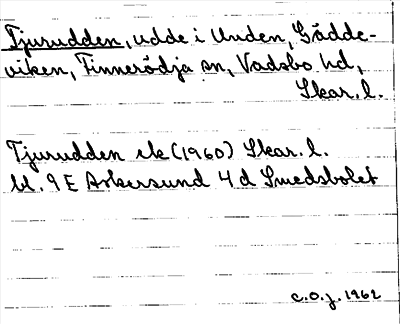 Tjurudden, udde i Unden, Gädde-
viken, Finnerödja sn, Vadsbo hd,
Skar. l.
Tjurudden ek (1960) Skar. l.
bl. 9 E Askersund 4 d Smedsbolet
C.O.J. 1962